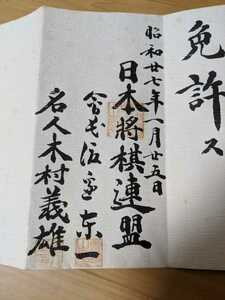 免許ス
昭和廿七年一月廿五日
日本將棋連盟
会長 東一
名人木村義雄